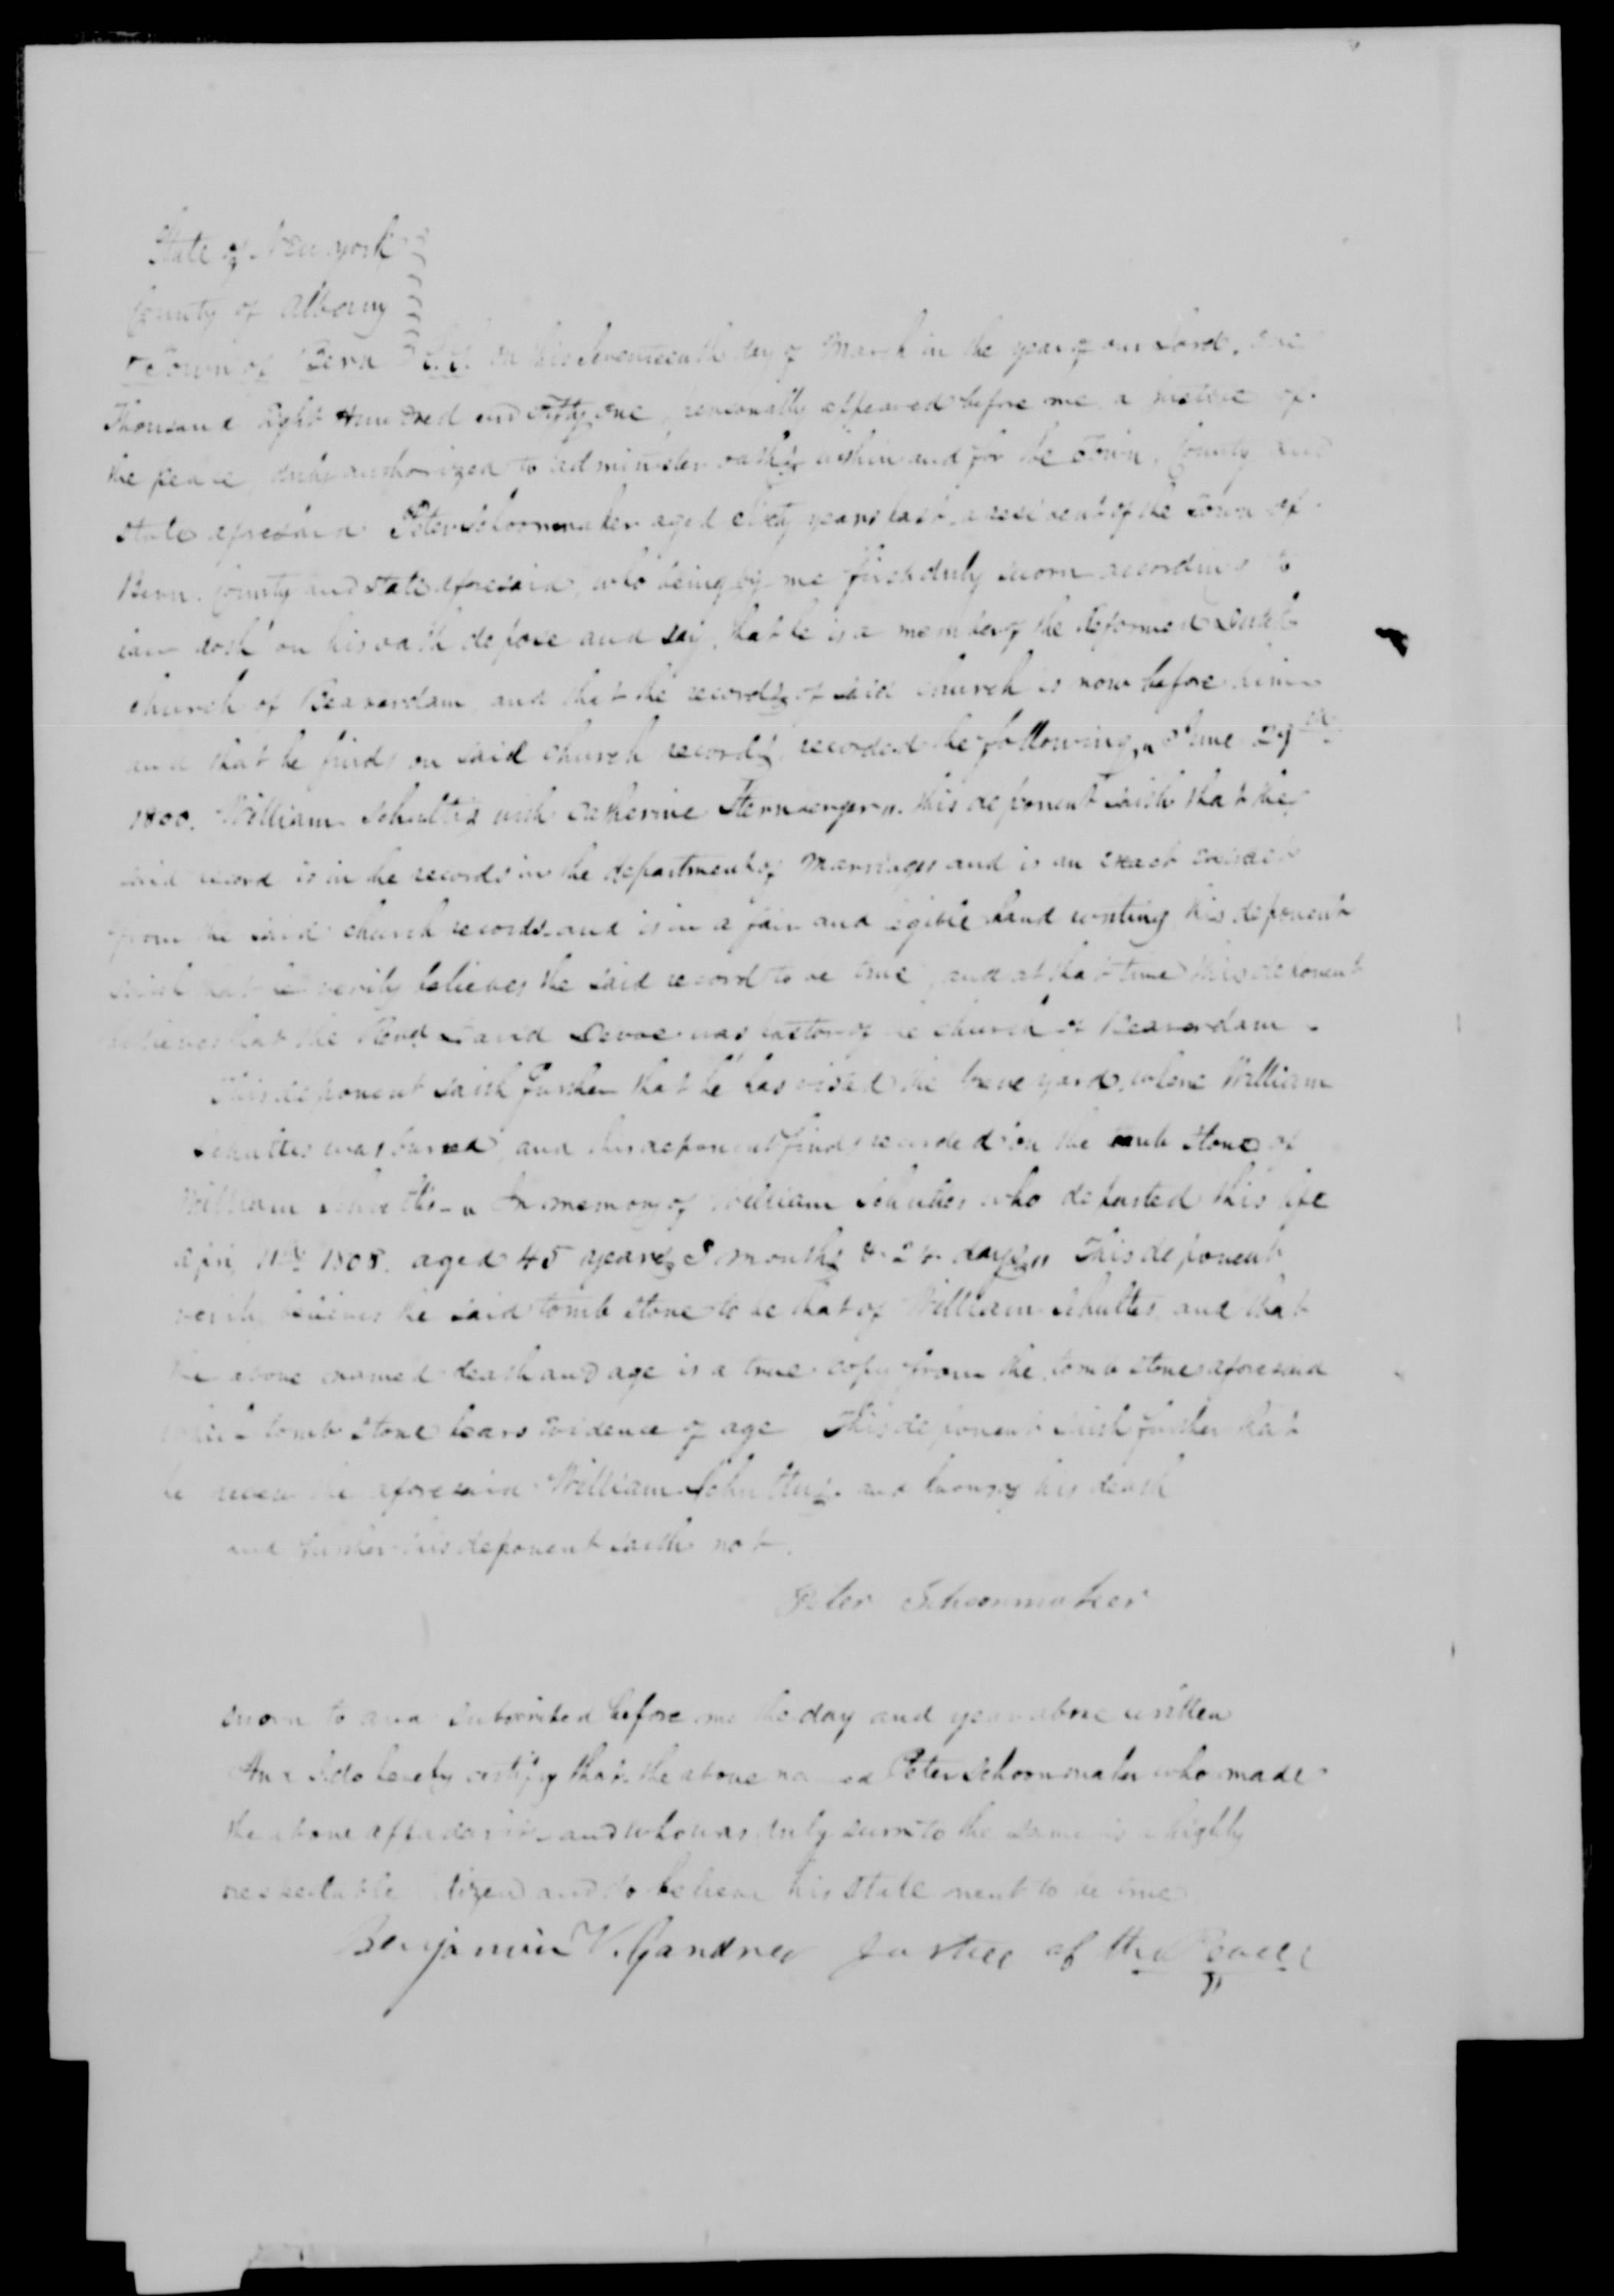 State of New york
County of Albany
Town of Bern S.S. On this Seventeenth day of March in the year of our Lord, one
Thousand Eight Hundred and Fifty one, personally appeared before me a Justice of
the peace, duly authorized to administer oaths within and for the Town, County and
State aforesaid Peter Schoonmaker aged sixty years last, a resident of the Town of
Bern. County and State aforesaid, who being by me first duly sworn according to
law doth on his oath depose and say, that he is a member of the Reformed Dutch
church of Beaverdam, and that the records of said church is now before him
and that he finds on said church records, recorded the following, " June 29th
1800. William Schultis with Catherine Sternberger ". this deponent saith that the
said record is in the records in the department of Marriages and is an exact extract
from the said church records and is in a fair and legible hand writing this deponent
saith that he verily believes the said record to be true, and at that time this deponent
believes that the Revd David Devoe was pastor of the church of Beaverdam.
This deponent saith further that he has visited the Grave yard, where William
Schultis was buried, and this deponent finds recorded on the tomb stone of
William Schultis - " In memory of William Schultis who departed this life
april 11th 1808. aged 45 years months & days " This deponent
verily believes the said tomb stone to be that of William Schultis, and that
the above named death and age is a true copy from the tomb stone aforesaid
which tomb stone bears evidence of age This deponent saith further that
he knew the aforesaid William Schultis. and his death
and further this deponent saith not.
Peter Schoonmaker
sworn to and subscribed before me the day and year above written
And I do hereby certify that the above named Peter Schoonmaker who made
the above affadavit and who was duly sworn to the same is a highly
respectable citizen and do believe his statement to be true
Benjamin V. Gardner Justice of the Peace